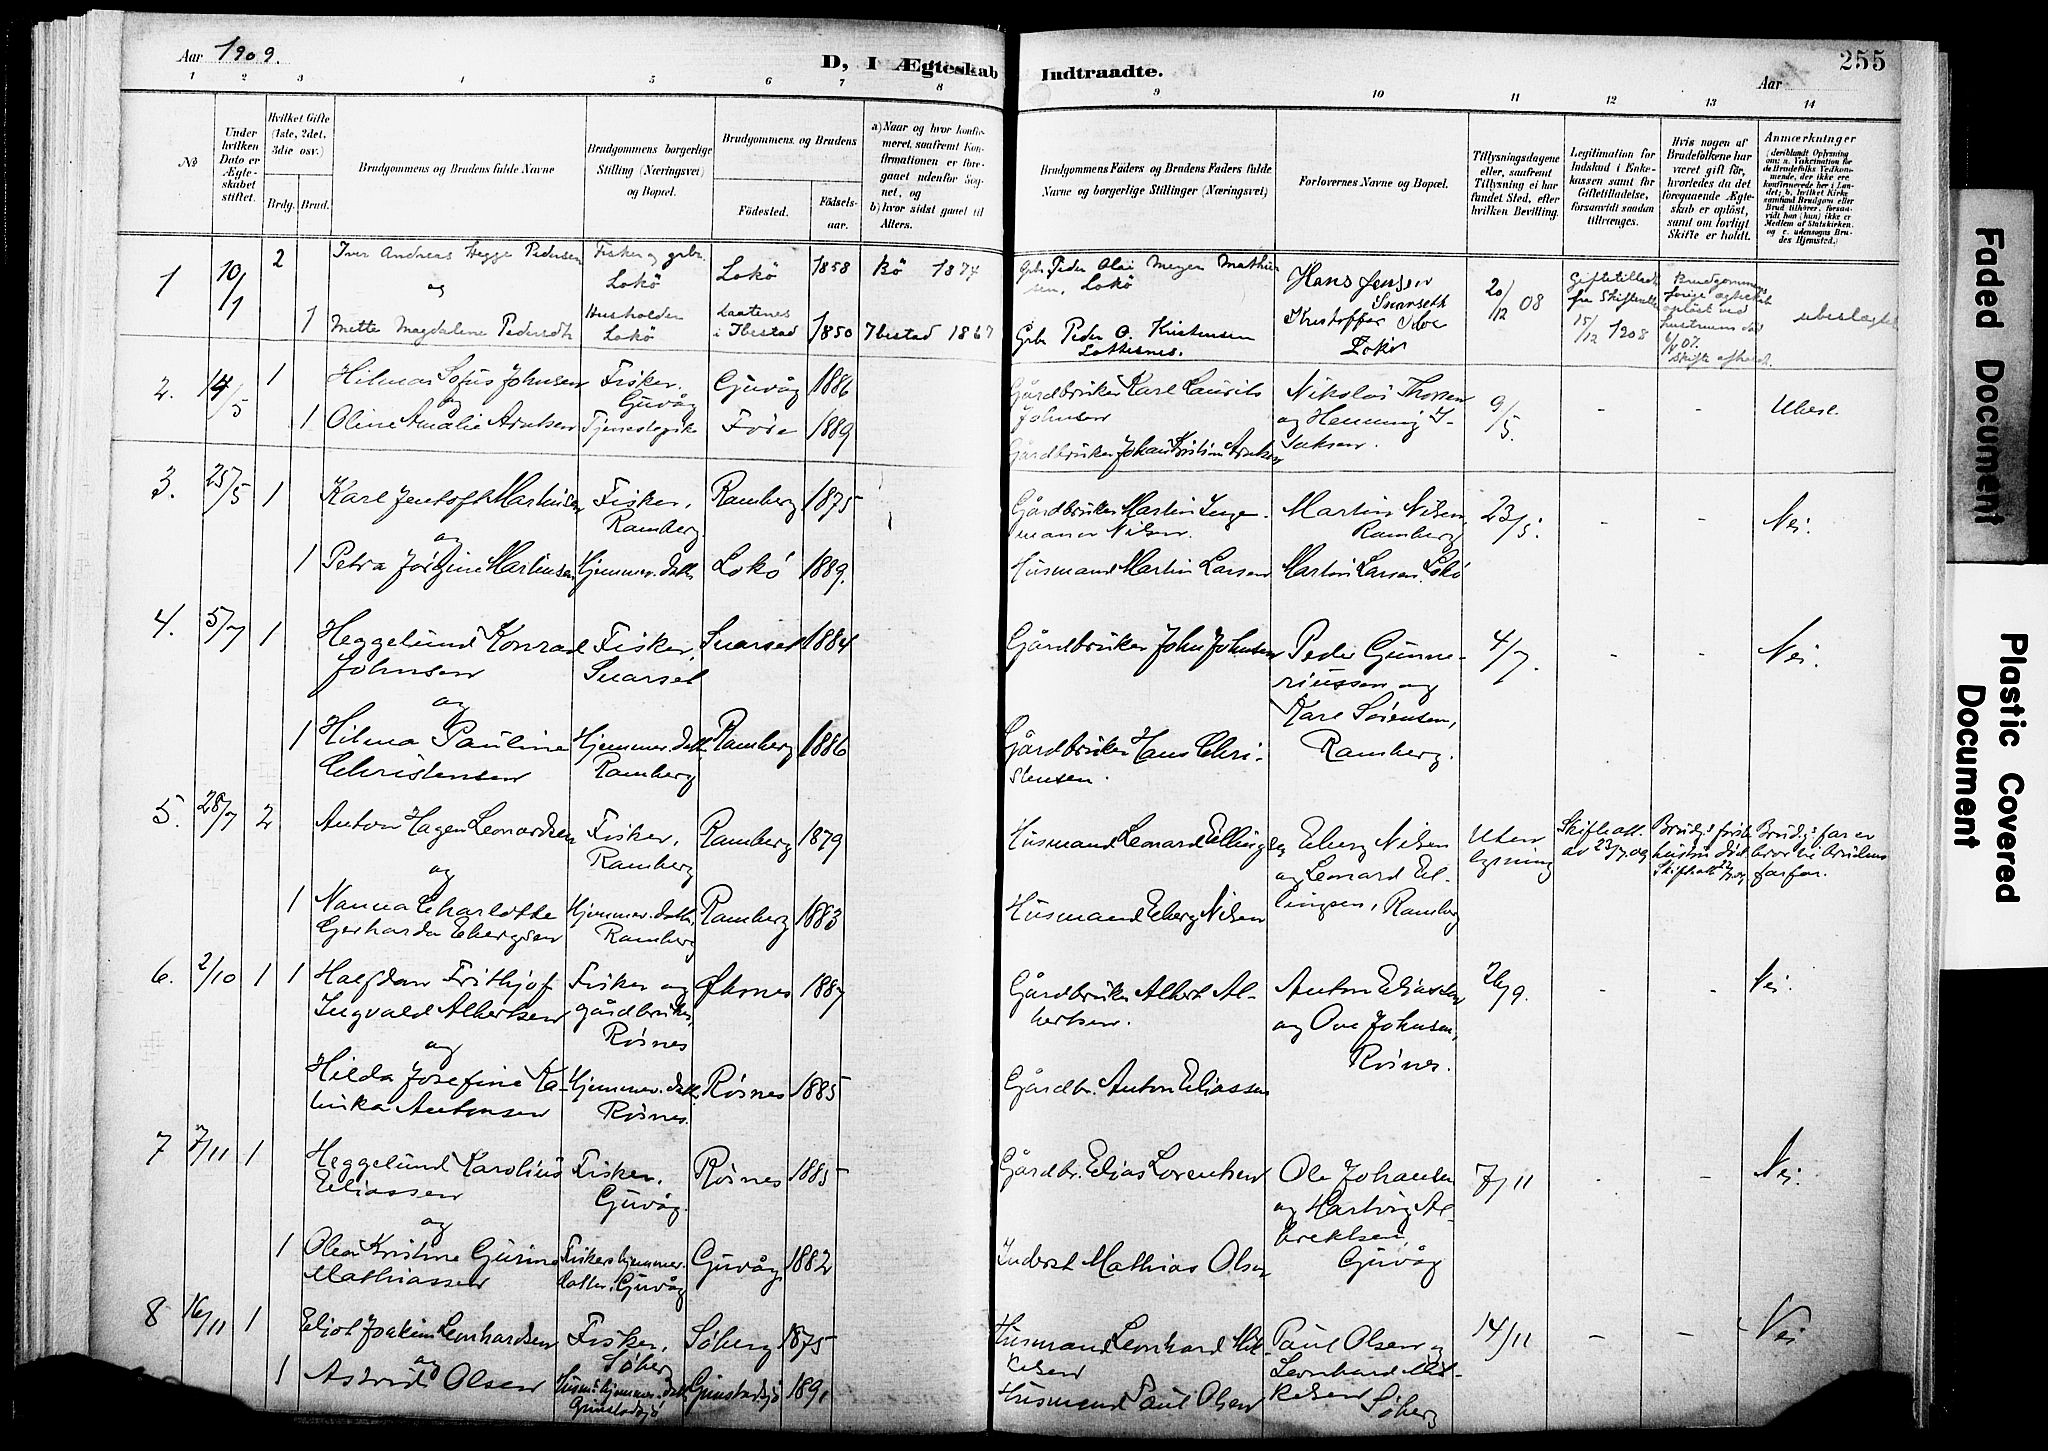 Aar 1909.
D, I Ægteskab Indtraadte.
255
Aar
1 2 3 4 5 6 7 8 9 10 11 12 13 14
No
Under hvilken Dato er Ægteskabet stiftet.
Hvilket Gifte (1ste, 2det, 3die osv.)
Brdg. Brud.
Brudgommens og Brudens fulde Navne
Brudgommens borgerlige Stilling (Næringsvei) og Bopæl.
Brudgommens og Brudens
Födested.
Födselsaar.
a) Naar og hvor konfirmeret, saafremt Konfirmationen er foregaaet udenfor Sognet, og
b) hvor sidst gaaet til Alters.
Brudgommens Faders og Brudens Faders fulde Navne og borgerlige Stillinger (Næringsvei)
Forlovernes Navne og Bopæl.
Tillysningsdagene eller, saafremt Tillysning ei har fundet Sted, efter hvilken Bevilling.
Legitimation for Indskud i Enkekassen samt for Giftetilladelse, forsaavidt saadan tiltrænges.
Hvis nogen af Brudefolkene har været gift før, hvorledes da det foregaaende Ægteskab er opløst, samt om lovligt Skifte er holdt.
Anmærkninger
1 10/1 2 Iver Andreas Hegge Pedersen Fisker og grbr. Lokö Lokö 1858 Bö 1874 Grbr. Peder Olai Meyer Mathiesen, Lokö Hans Jensen Snarseth 20/12 08 Giftetillad. fra Skifteretten 15/12 1908 Brudgommens forige ægteskab opløst ved hustruens död 07. Skifte afholdt. ubeslægtet
og
1 Mette Magdalene Pedersdtr Husholder Lokö i Ibestad 1850 Ibestad 1867 Grbr Peder O. Kristensen Kristoffer Lokö
2. 14/5 1 Hilmar Sofus Johnsen Fisker. Guvåg Guvåg 1886 Gårdbruker Karl Laurits Johnsen Nikolai Thorsen og Henning Isaksen. 9/5. - - Ubesl.
og
1 Oline Amalie Arntsen Tjenestepike Före 1889 Gårdbruker Johan Kristian Arntsen
3. 25/5 1 Karl Jentoft Martinsen Fisker, Ramberg. Ramberg 1875 Gårdbruker Martin Ingemann Nilsen. Martin Nilsen, Ramberg 23/5. - - Nei.
og
1 Petra Jörgine Martinsen Hjemmev. datter Lokö 1889. Husmand Martin Larsen Martin Larsen, Lokö
4. 5/7 1 Heggelund Konrad Johnsen Fisker, Snarset Snarset 1884 Gårdbruker John Johnsen Peder Gunneriussen og Karl Sörensen, Ramberg. 4/7. - - Nei.
og
1 Hilma Pauline Christensen Hjemmev. datt. Ramberg Ramberg 1886 Gårdbruker Hans Christensen.
5. 28/7 2 Anton Hagen Leonardsen Fisker, Ramberg Ramberg 1879 Husmand Leonard Ellingsen Eberg Nilsen og Leonard Ellingsen, Ramberg Uten lysning Skifteatt. av 23/7 09 Brudg.s första hustru död Skifteatt. 23/7 09 Brudg.s far er bror til brudens farfar.
og
1 Nanna Charlotte Gerharda Ebergsen Hjemmev. datt. Ramberg Ramberg 1883 Husmand Eberg Nilsen
6. 2/10 1 1 Halfdan Frithjof Ingvald Albertsen Fisker og gårdbruker, Rösnes Öksnes 1887 Gårdbruker Albert Albertsen. Anton Eliassen og Ove Johnsen, Rösnes. 26/9. - - Nei.
og
Hilda Josefine Katinka Antonsen Hjemmev. datt. Rösnes. Rösnes 1885 Gårdbr. Anton Eliassen
7 7/11 1 Heggelund Karolius Eliassen Fisker, Guvåg. Rösnes 1885 Gårdbr. Elias Lorentsen Ole Johansen og Hartvig Albrektsen, Guvåg 7/11 - - Nei.
og
1 Olea Kristine Gurine Mathiassen Fiskers hjemmev. datter, Guvåg Guvåg 1882 Inderst Mathias Olsen
8 16/11 1 Eliot Joakim Leonhardsen Fisker, Söberg Söberg 1875 Husmand Leonhard Mikkelsen Paul Olsen og Leonhard Mikkelsen Söberg 14/11 - - Nei
og
1 Astrid Olsen Husm. hjemmev. datt. Grimstadsjö Grimstadsjö 1891 Husmand Paul Olsen
Faded Document
Plastic Covered Document